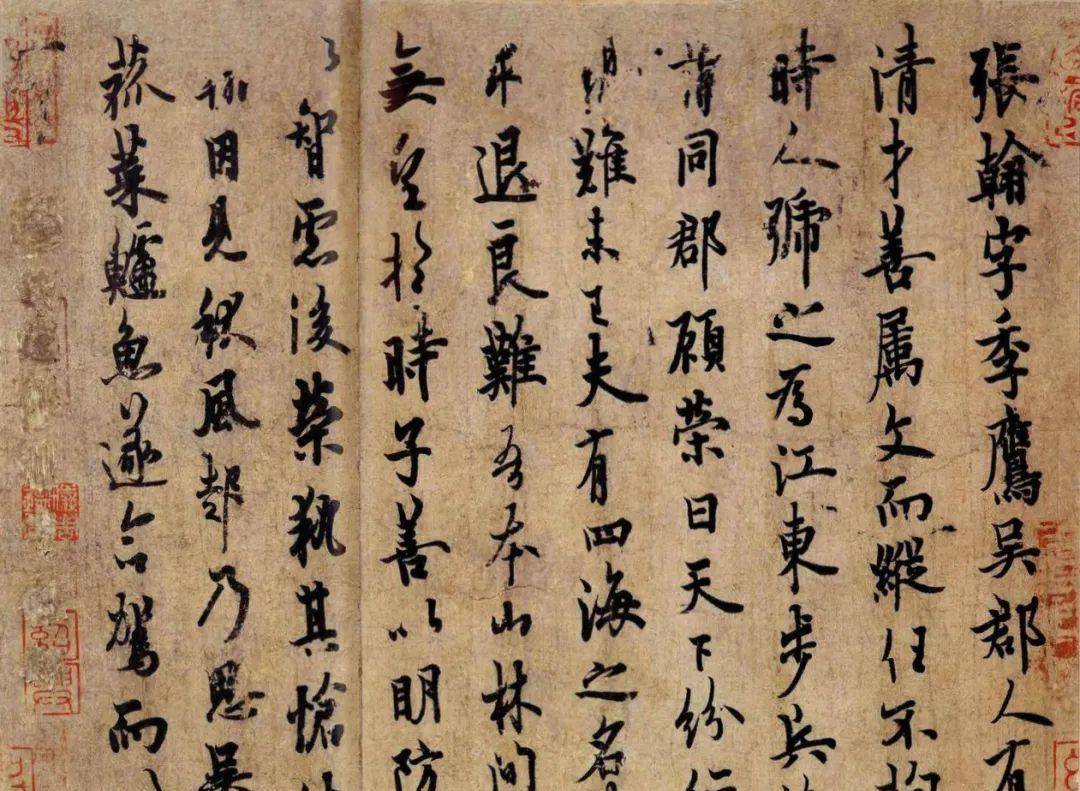 張翰字季鷹吳郡人有
清才善屬文而縱任不
時人號之為江東步兵
同郡顧榮曰天下紛
難未已夫有四海之名
求退良難吾本山林間
無望於時子善以明防
智慮後榮執其愴
因見秋風起乃思吳
菰菜鱸魚遂命駕而